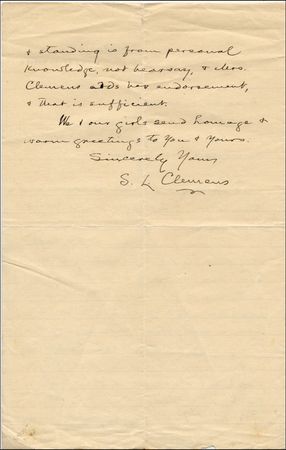 & standing is from personal
knowledge, not hearsay, & Mrs.
Clemens adds her endorsement,
& that is sufficient.
We & our girls send homage &
warm greetings to You & Yours.
Sincerely Yours
S. L. Clemens